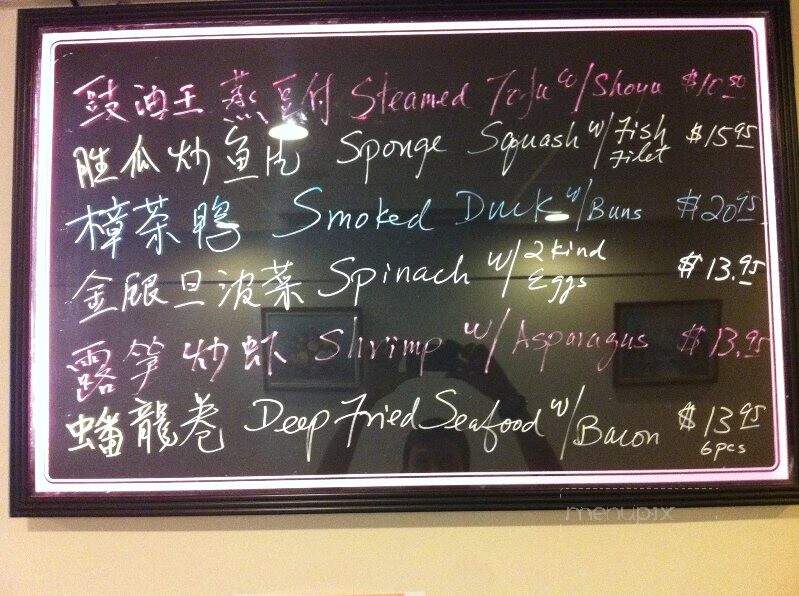 豉油王蒸豆付 Steamed Tofu w/ Shoyu $10.50
胜瓜炒鱼片 Sponge Squash w/ Fish Filet $15.95
樟茶鸭 Smoked Duck w/ Buns $20.95
金银旦波菜 Spinach w/ 2 kind Eggs $13.95
露笋炒虾 Shrimp w/ Asparagus $13.95
蟠龍卷 Deep Fried Seafood w/ Bacon $13.95
6pcs
menupix